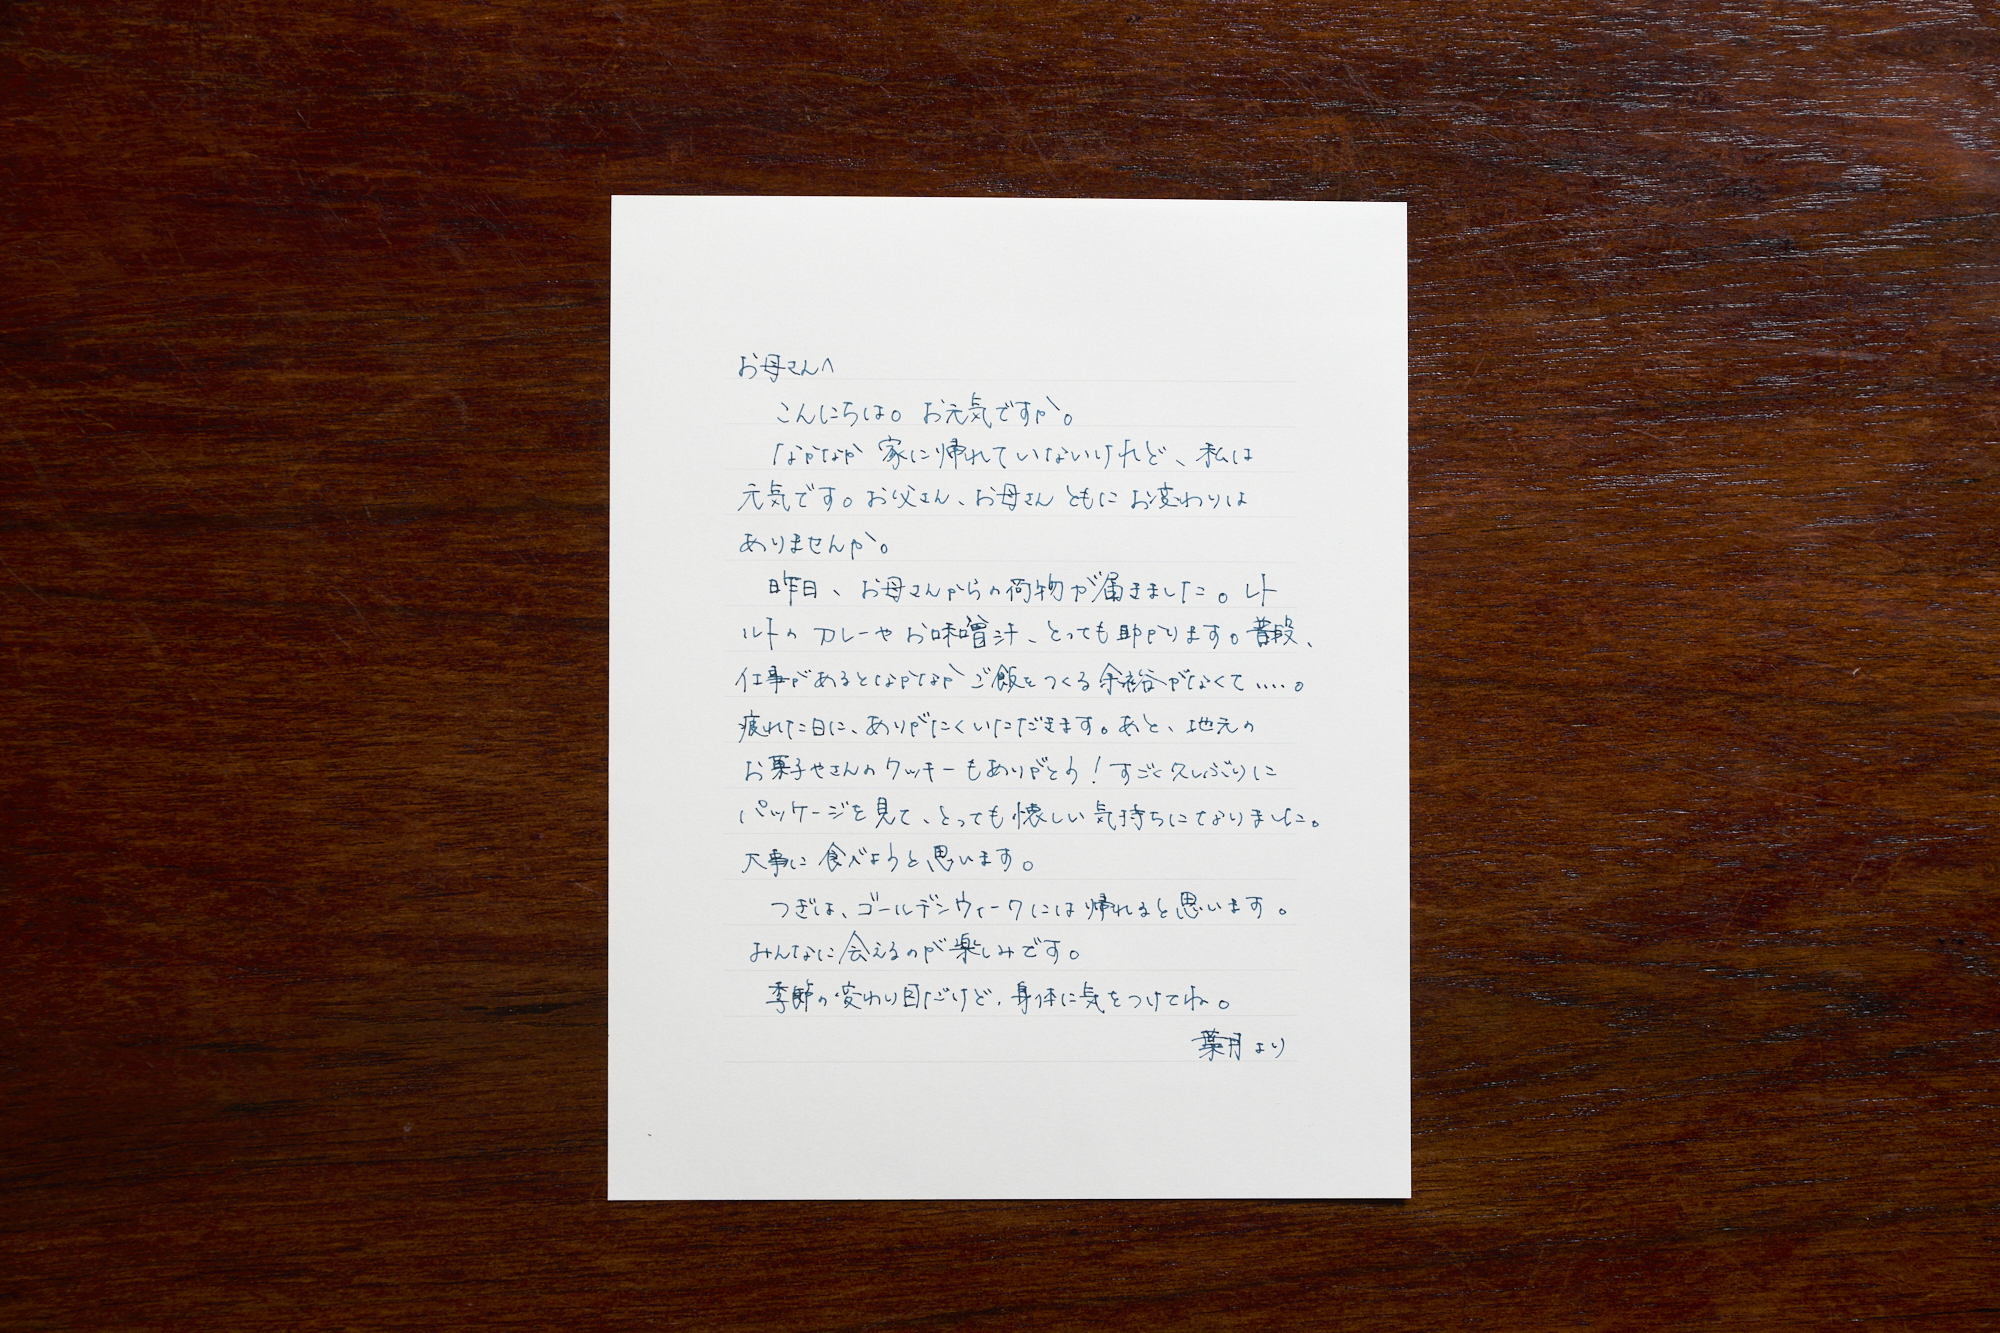 お母さんへ
こんにちは。お元気ですか。
なかなか家に帰れていないけれど、私は
元気です。お父さん、お母さんともにお変わりは
ありませんか。
昨日、お母さんからの荷物が届きました。レト
ルトのカレーやお味噌汁、とっても助かります。普段、
仕事があるとなかなかご飯をつくる余裕がなくて‥‥。
疲れた日に、ありがたくいただきます。あと、地元の
お菓子やさんのクッキーもありがとう！すごく久しぶりに
パッケージを見て、とっても懐しい気持ちになりました。
大事に食べようと思います。
つぎは、ゴールデンウィークには帰れると思います。
みんなに会えるのが楽しみです。
季節の変わり目だけど、身体に気をつけてね。
葉月より